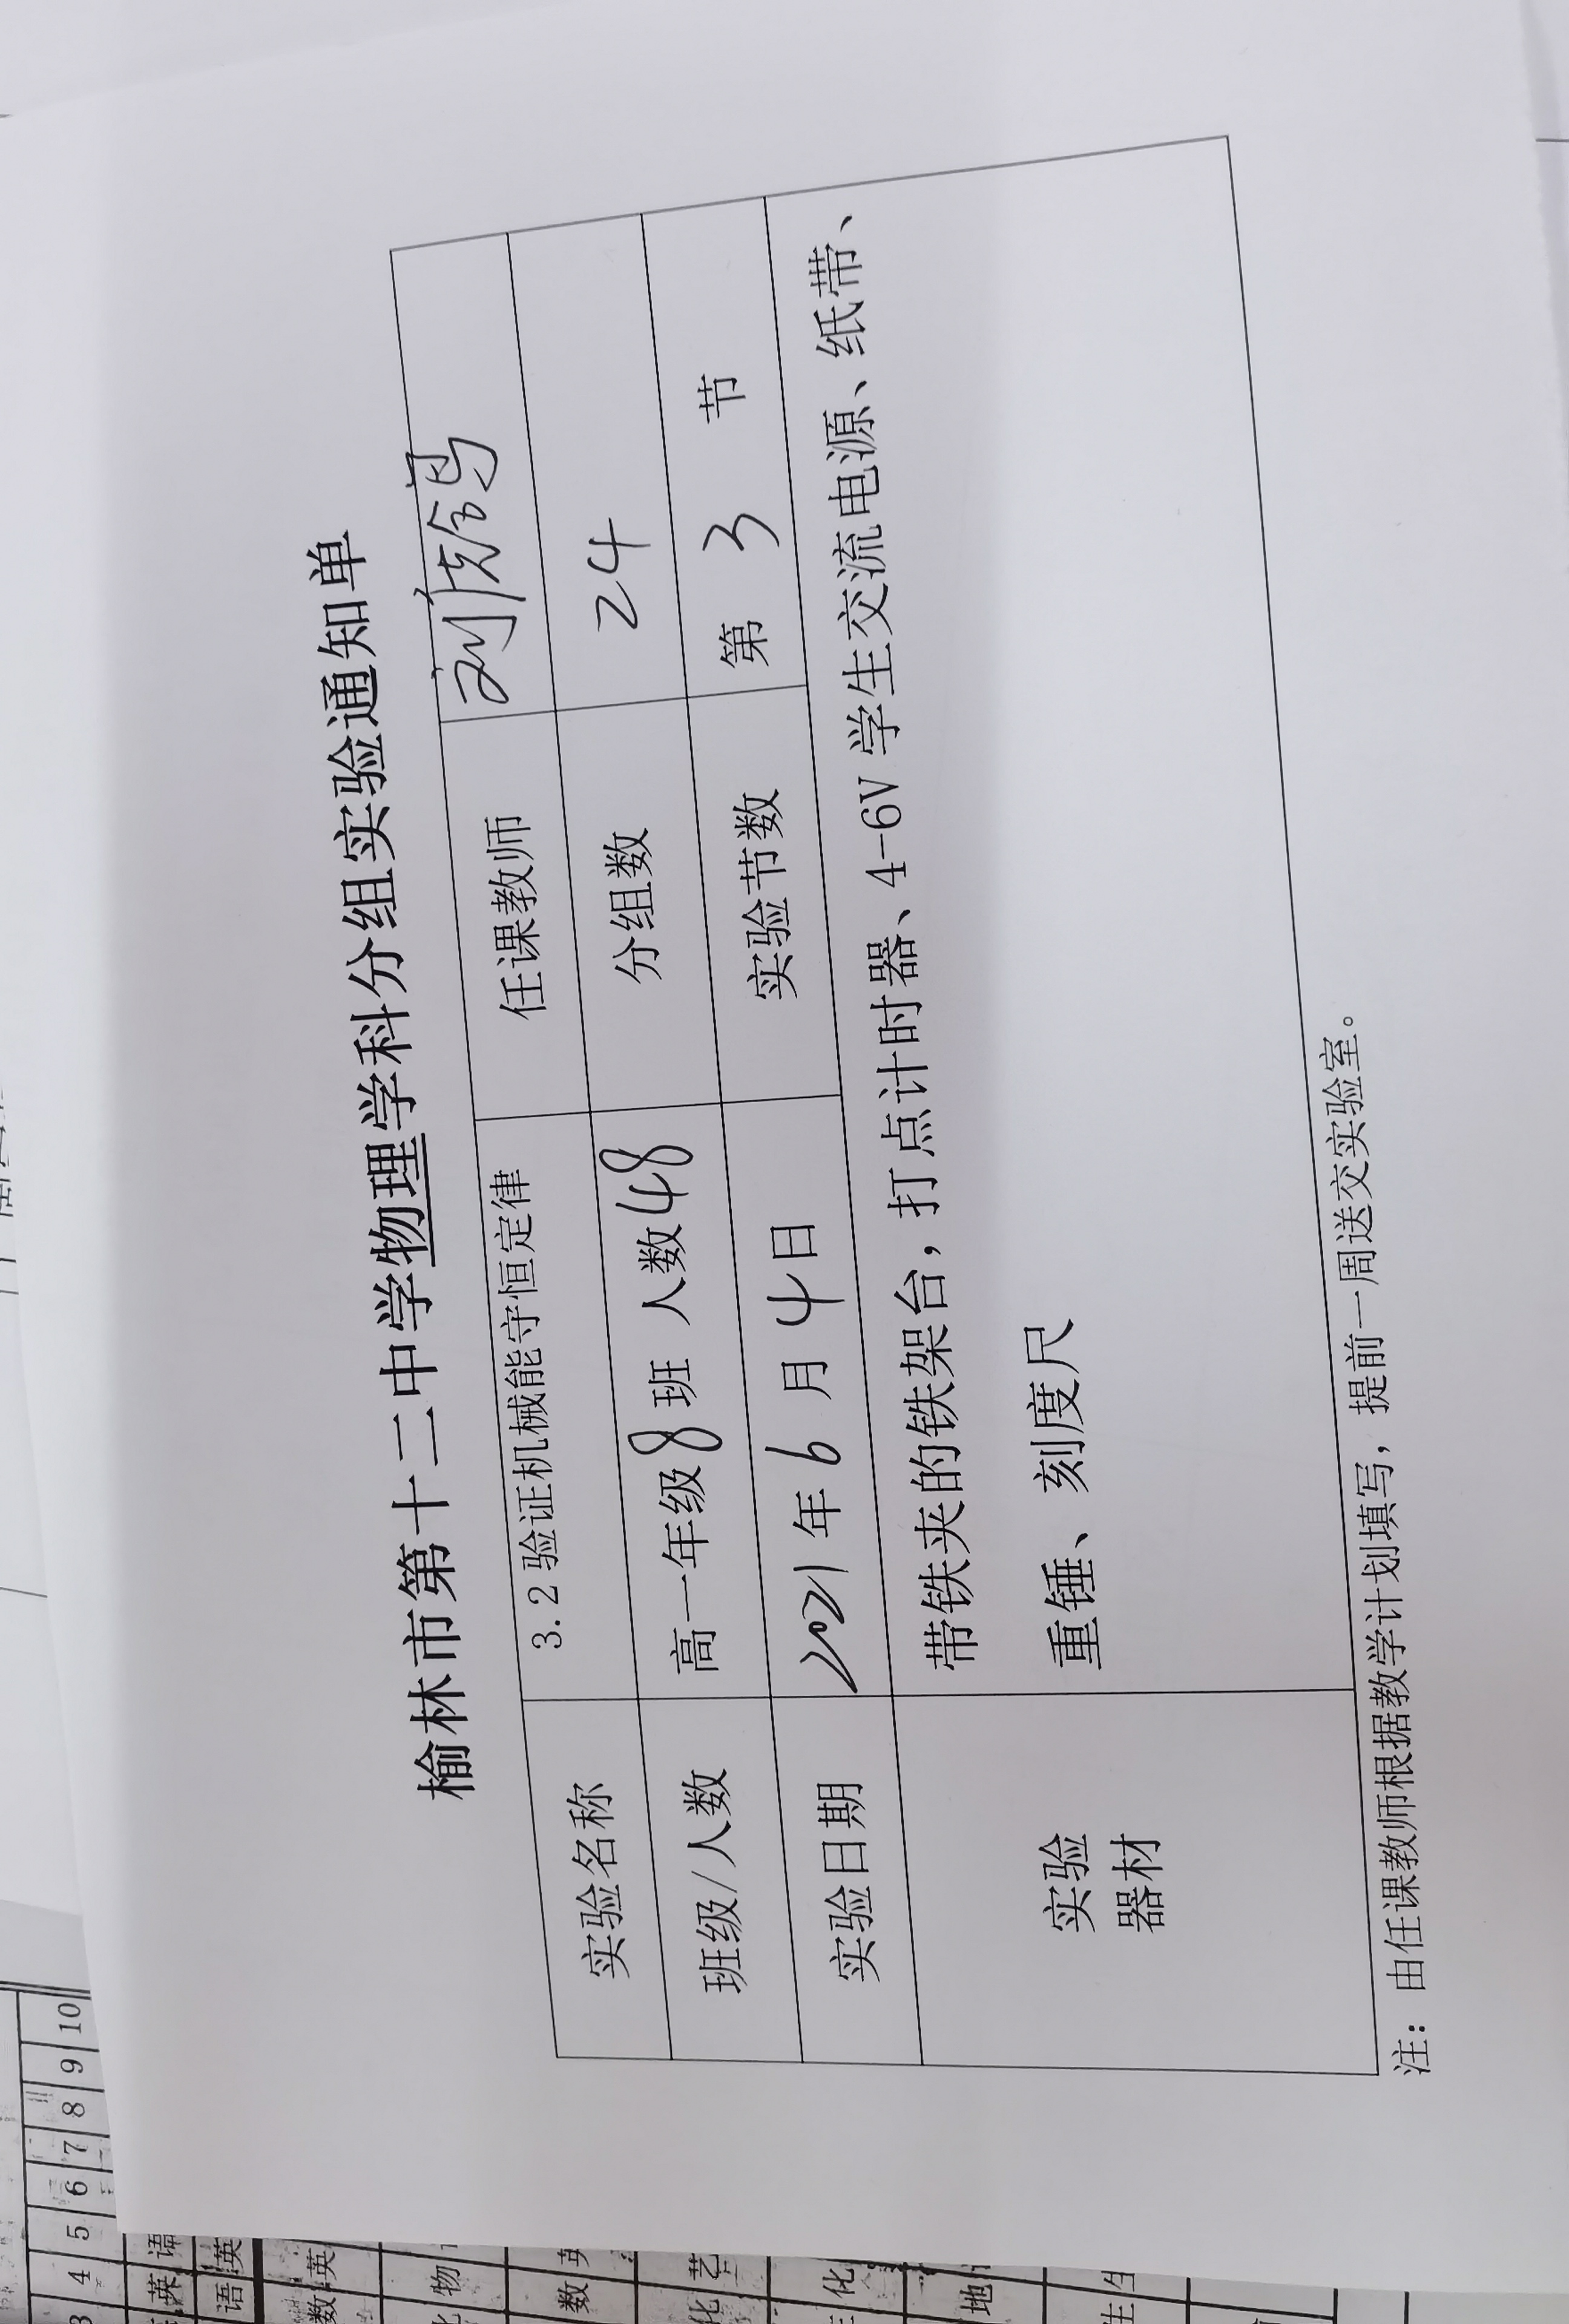 榆林市第十二中学物理学科分组实验通知单
实验名称 3.2 验证机械能守恒定律 任课教师 刘
班级/人数 高一年级8班 人数48 分组数 24
实验日期 2021年6月4日 实验节数 第 3 节
实验器材 带铁夹的铁架台，打点计时器、4-6V 学生交流电源、纸带、
重锤、刻度尺
注：由任课教师根据教学计划填写，提前一周送交实验室。
3 4 5 6 7 8 9 10
英 语
语 英
数 英
物
数
化 艺
化
地
生